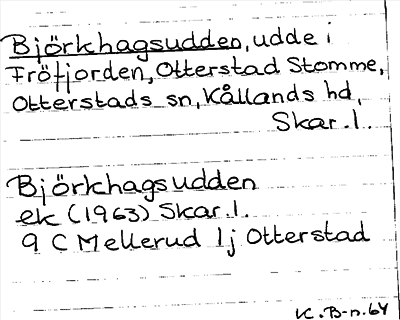 Björkhagsudden, udde i
Fröfjorden, Otterstad Stomme,
Otterstads sn, Kållands hd,
Skar.l.
Björkhagsudden
ek (1963) Skar.l.
9 C Mellerud 1j Otterstad
K.B-n.64